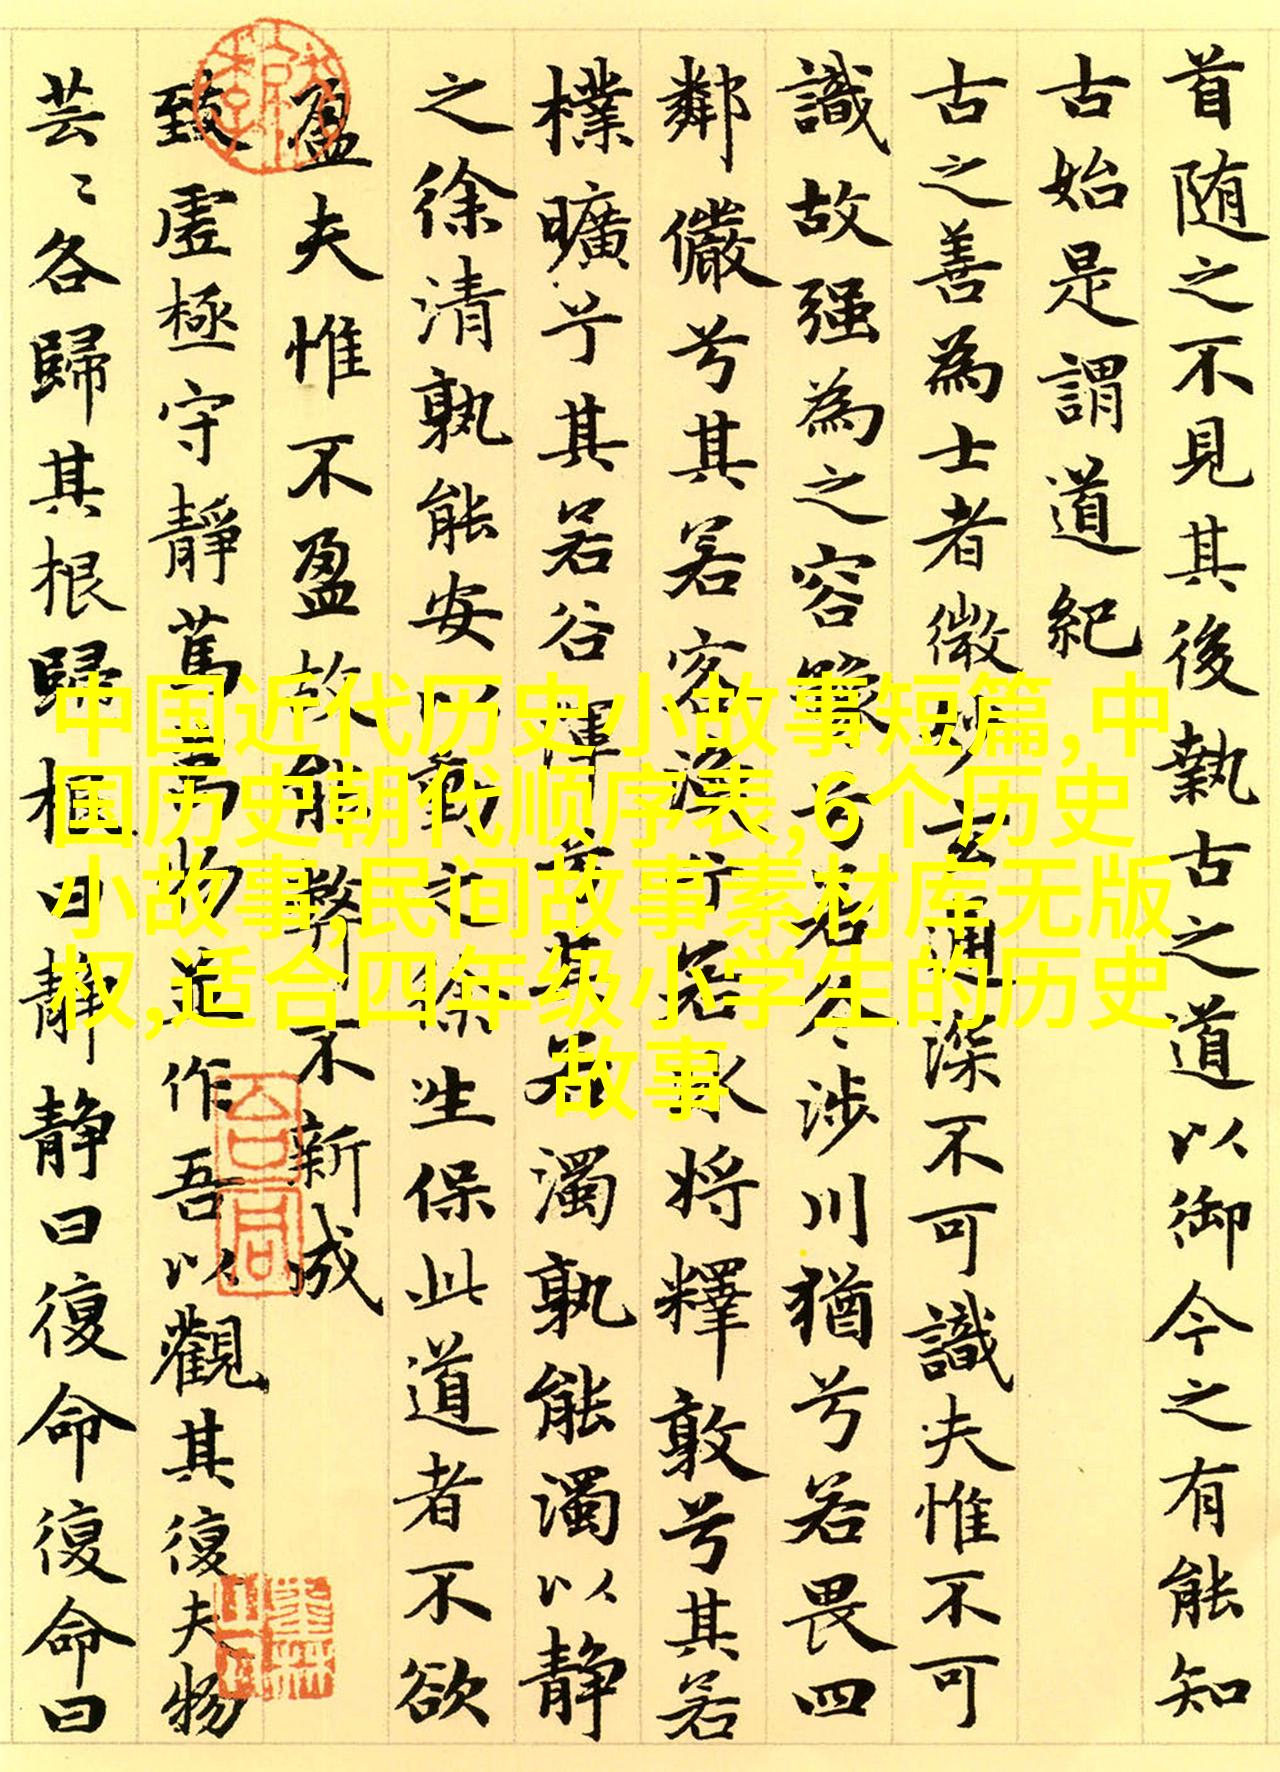 首随之不見其後執古之道以御今之有能知
古始是謂道紀
古之善為士者微妙玄通深不可識夫惟不可
識故强為之容豫兮若冬涉川猶兮若畏四
鄰儼兮其若客渙兮若冰將釋敦兮其若
樸曠兮其若谷渾兮其若濁孰能濁以靜
之徐清孰能安以動之徐生保此道者不欲
盈夫惟不盈故能弊不新成
致虛極守靜篤萬物並作吾以觀其復夫物
芸〻各歸其根歸根曰靜靜曰復命復命曰
中国近代历史小故事短篇,中
国历史朝代顺序表,6个历史
小故事,民间故事素材库无版
权,适合四年级小学生的历史
故事